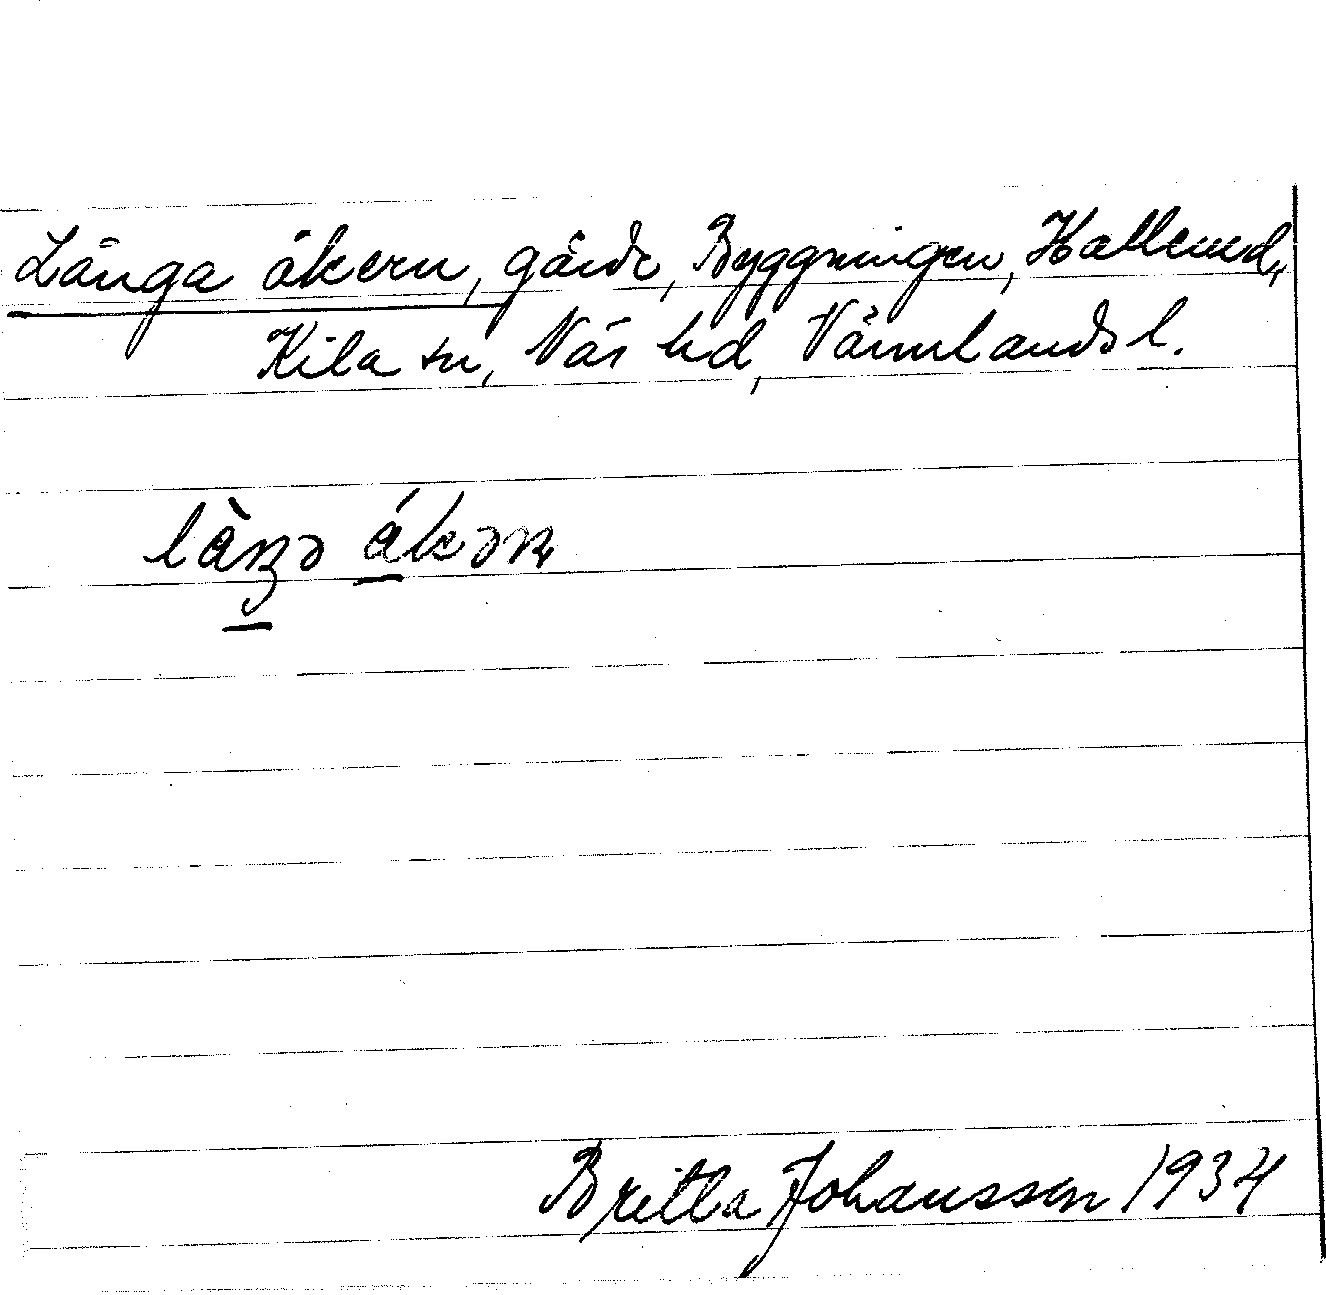 Långa åkern, gärde, Byggningen, Hallerud,
Kila sn, Näs hd, Värmlands l.
låŋə åkəɳ
Britta Johansson 1934